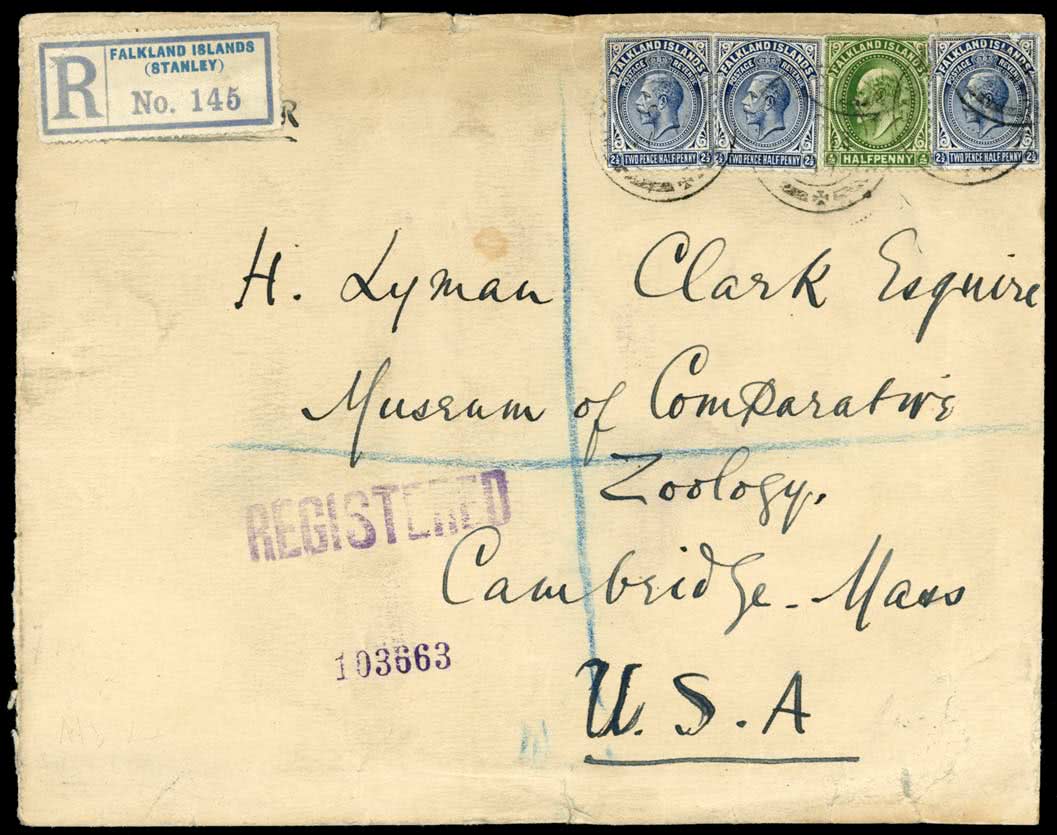 R
FALKLAND ISLANDS
(STANLEY)
No. 145
R
FALKLAND ISLANDS
POSTAGE REVENUE
2½ TWO PENCE HALFPENNY 2½
FALKLAND ISLANDS
POSTAGE REVENUE
2½ TWO PENCE HALFPENNY 2½
FALKLAND ISLANDS
½ HALFPENNY ½
FALKLAND ISLANDS
2½ TWO PENCE HALFPENNY 2½
H. Lyman Clark Esquire
Museum of Comparative
Zoology.
REGISTERED
Cambridge - Mass
103663
U.S.A